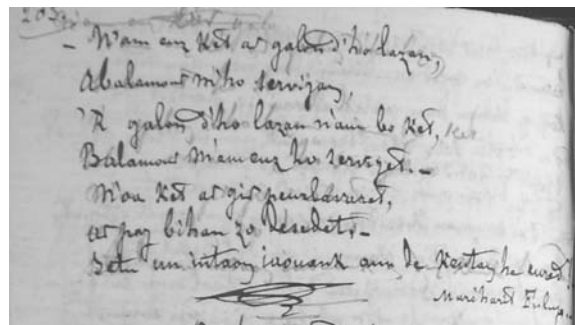 - N'am euz ket ar galon d'ho lazan,
Abalamour m'ho servijan,
'R galon d'ho lazan n'am bo ket, ket
Balamour m'am euz ho servijet. -
N'oa ket ar gir peurlavaret,
ar paz bihan zo desedet, -
Setu un intaon iaouank ann de kentan he eured!
Marihart